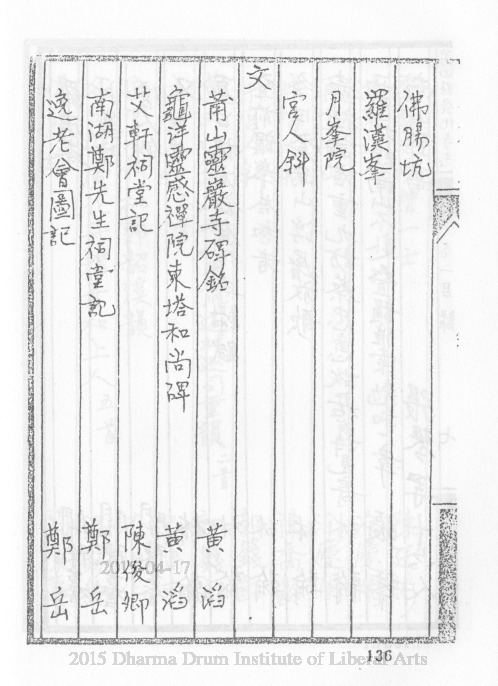 佛腸坑
羅漢峯
月峯院
宮人斜
文
莆山靈巖寺碑銘 黃滔
龜洋靈感禪院東塔和尚碑 黃滔
艾軒祠堂記 陳俊卿
南湖鄭先生祠堂記 鄭岳
逸老會圖記 鄭岳
136
2015 Dharma Drum Institute of Liberal Arts